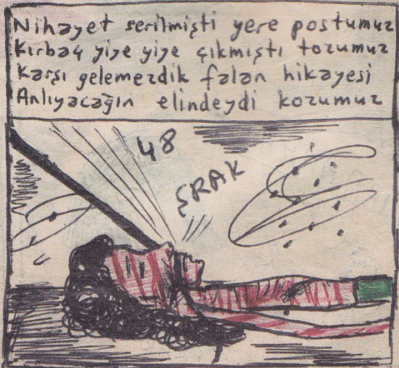 Nihayet serilmişti yere postumuz
Kırbaç yiye yiye çıkmıştı tozumuz
Karşı gelemezdik falan hikayesi
Anlıyacağın elindeydi kozumuz
48
ŞRAK